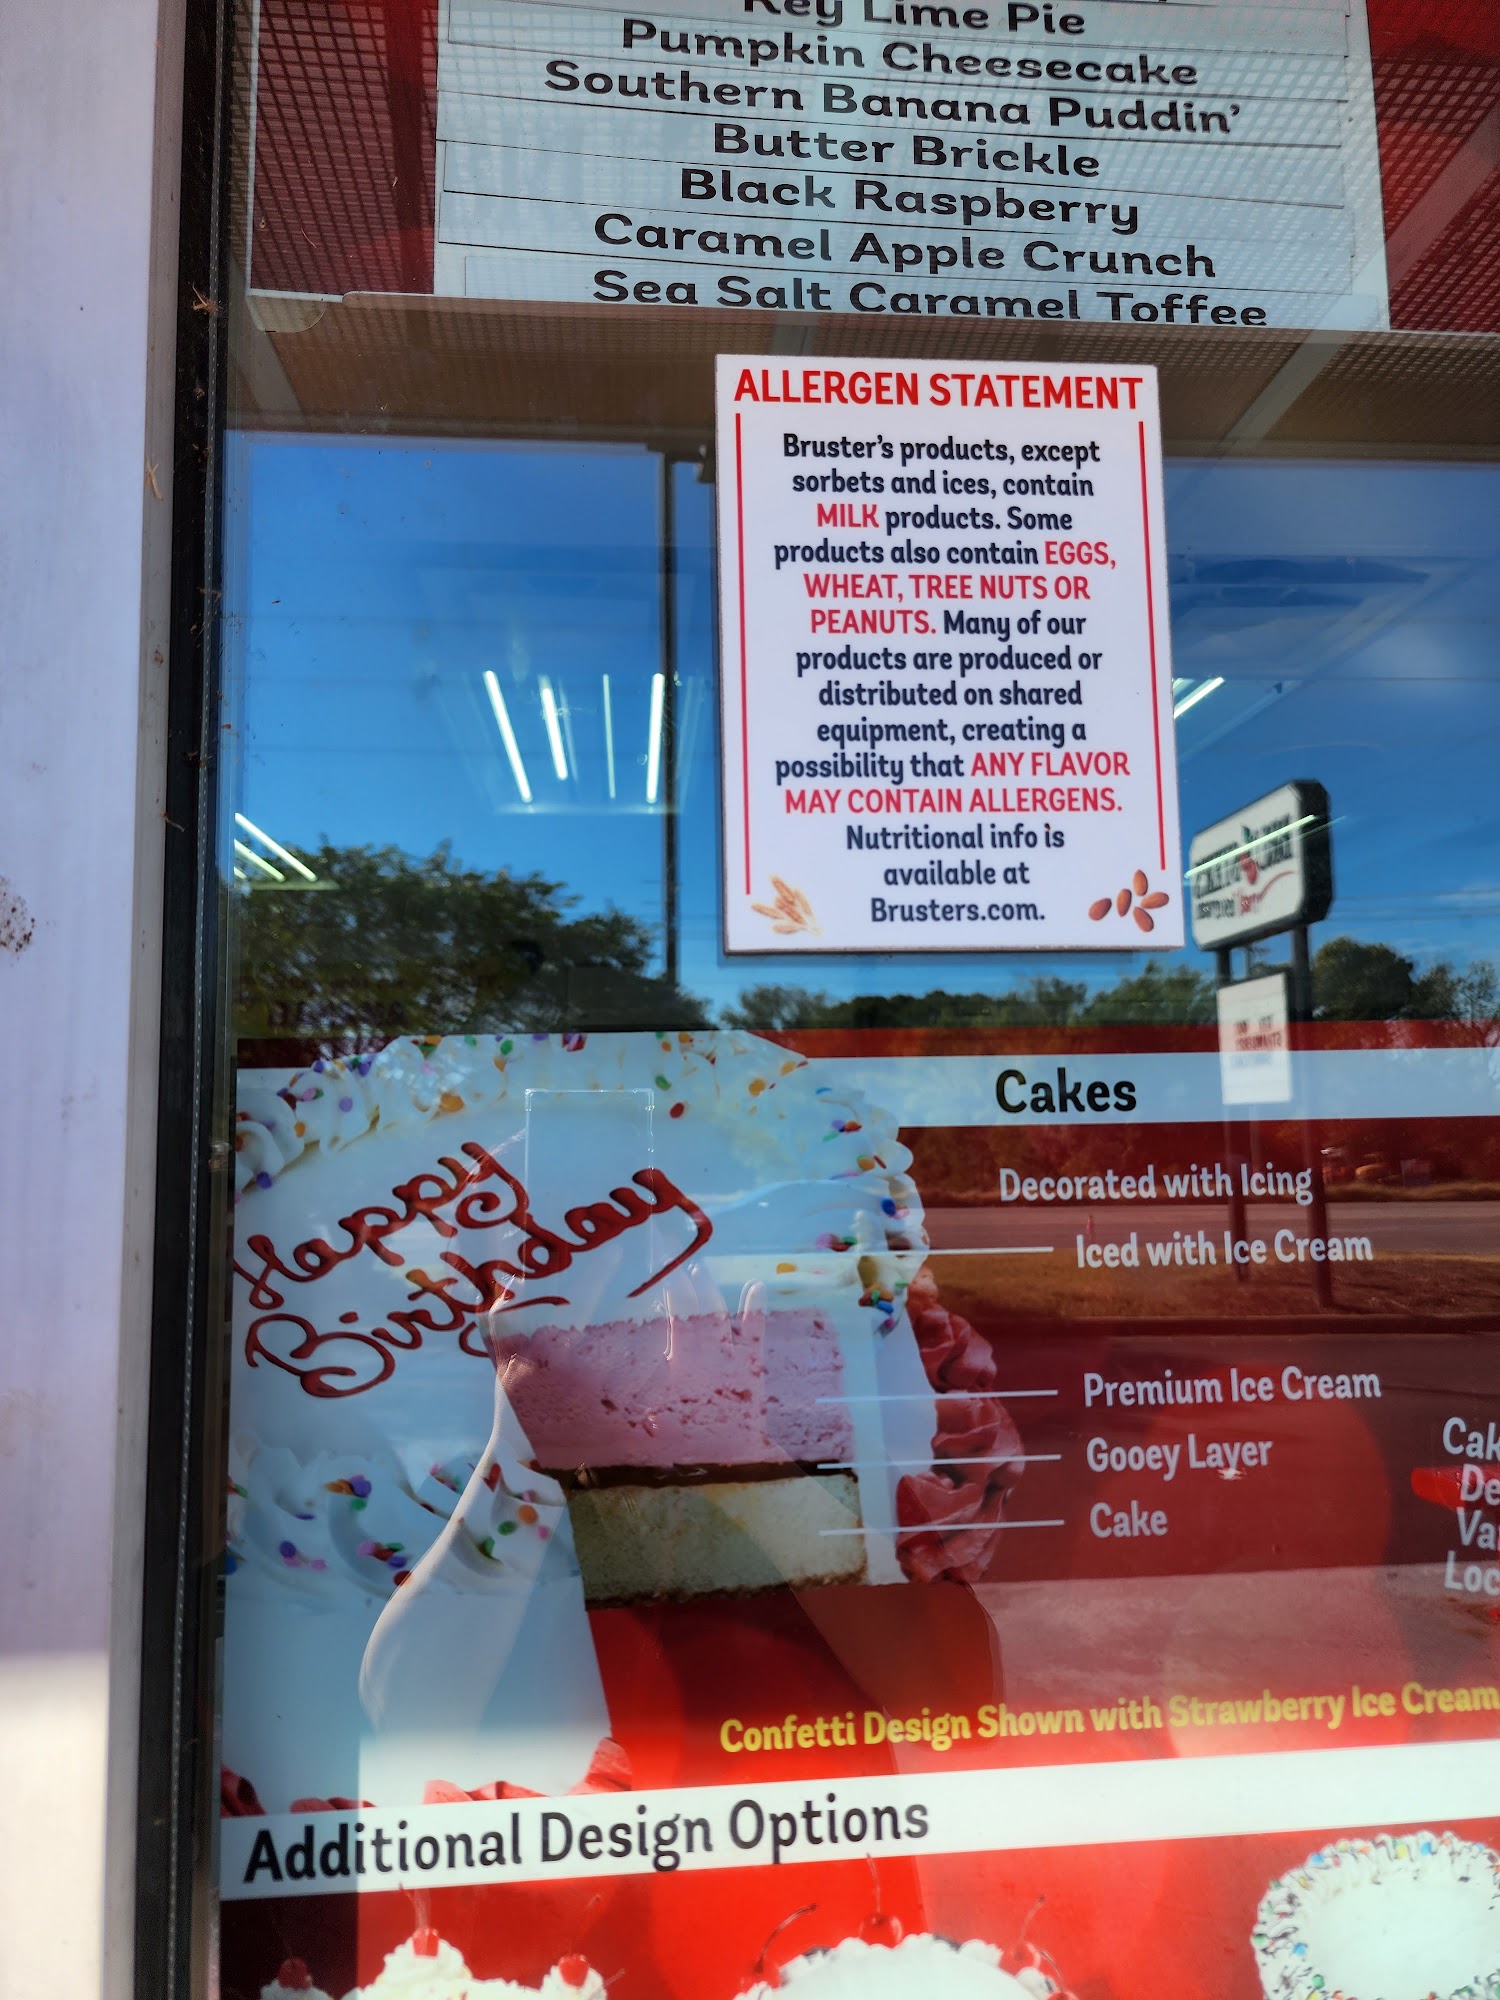 Key Lime Pie
Pumpkin Cheesecake
Southern Banana Puddin'
Butter Brickle
Black Raspberry
Caramel Apple Crunch
Sea Salt Caramel Toffee
ALLERGEN STATEMENT
Bruster's products, except
sorbets and ices, contain
MILK products. Some
products also contain EGGS,
WHEAT, TREE NUTS OR
PEANUTS. Many of our
products are produced or
distributed on shared
equipment, creating a
possibility that ANY FLAVOR
MAY CONTAIN ALLERGENS.
Nutritional info is
available at
Brusters.com.
Cakes
Happy
Birthday
Decorated with Icing
Iced with Ice Cream
Premium Ice Cream
Gooey Layer
Cake
Cak
De
Va
Loc
Confetti Design Shown with Strawberry Ice Cream
Additional Design Options